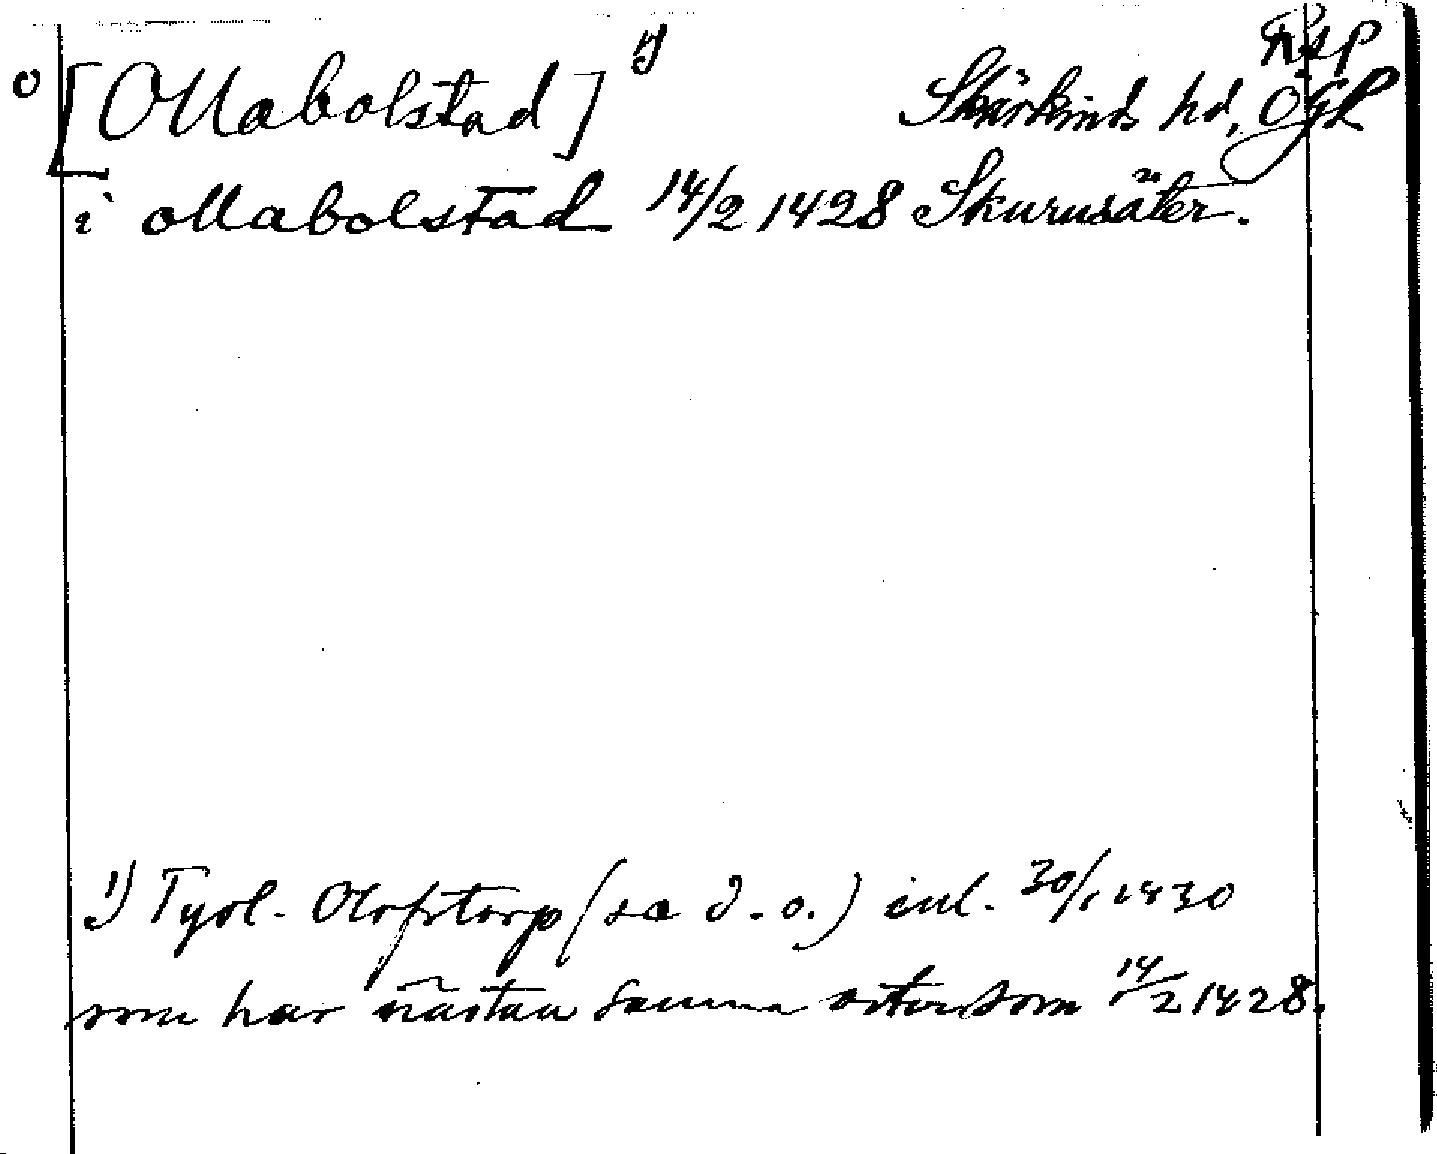 Rsp
o [Ollabolstad] 1) Skärkinds hd, Ögl
i ollabolstad 14/2 1428 Skurusäter.
1) Tyol. Olofstorp (se d. o.) enl. 30/1 1430
som har nästan samma orter som 14/2 1428.